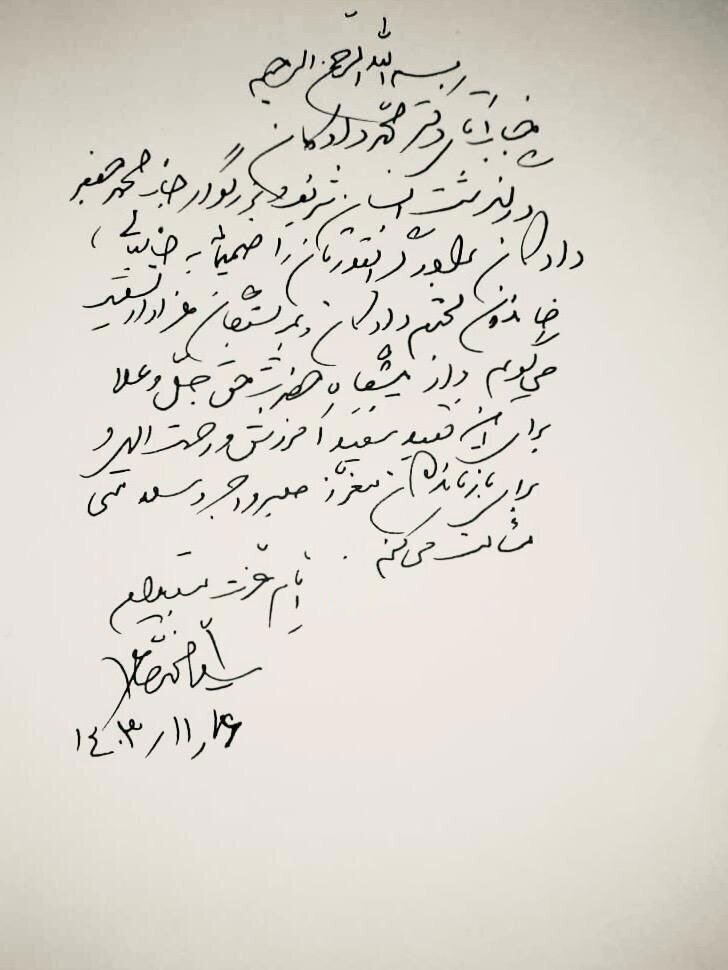 بسم الله الرحمن الرحیم
جناب آقای دکتر محمد دادکان
درگذشت انسان شریف و بزرگوار جناب محمد جعفر
دادکان برادر گرانقدرتان را صمیمانه به جنابعالی،
خاندان محترم دادکان و بستگان عزادار تسلیت
می‌گویم و از پیشگاه حضرت حق جلّ و علا
برای این فقید سعید آمرزش و رحمت الهی و
برای بازماندگان معزز صبر و اجر و سلامتی
مسألت می‌کنم.
ایام عزت مستدام
سید محمد خاتمی
۱۴۰۳/۱۱/